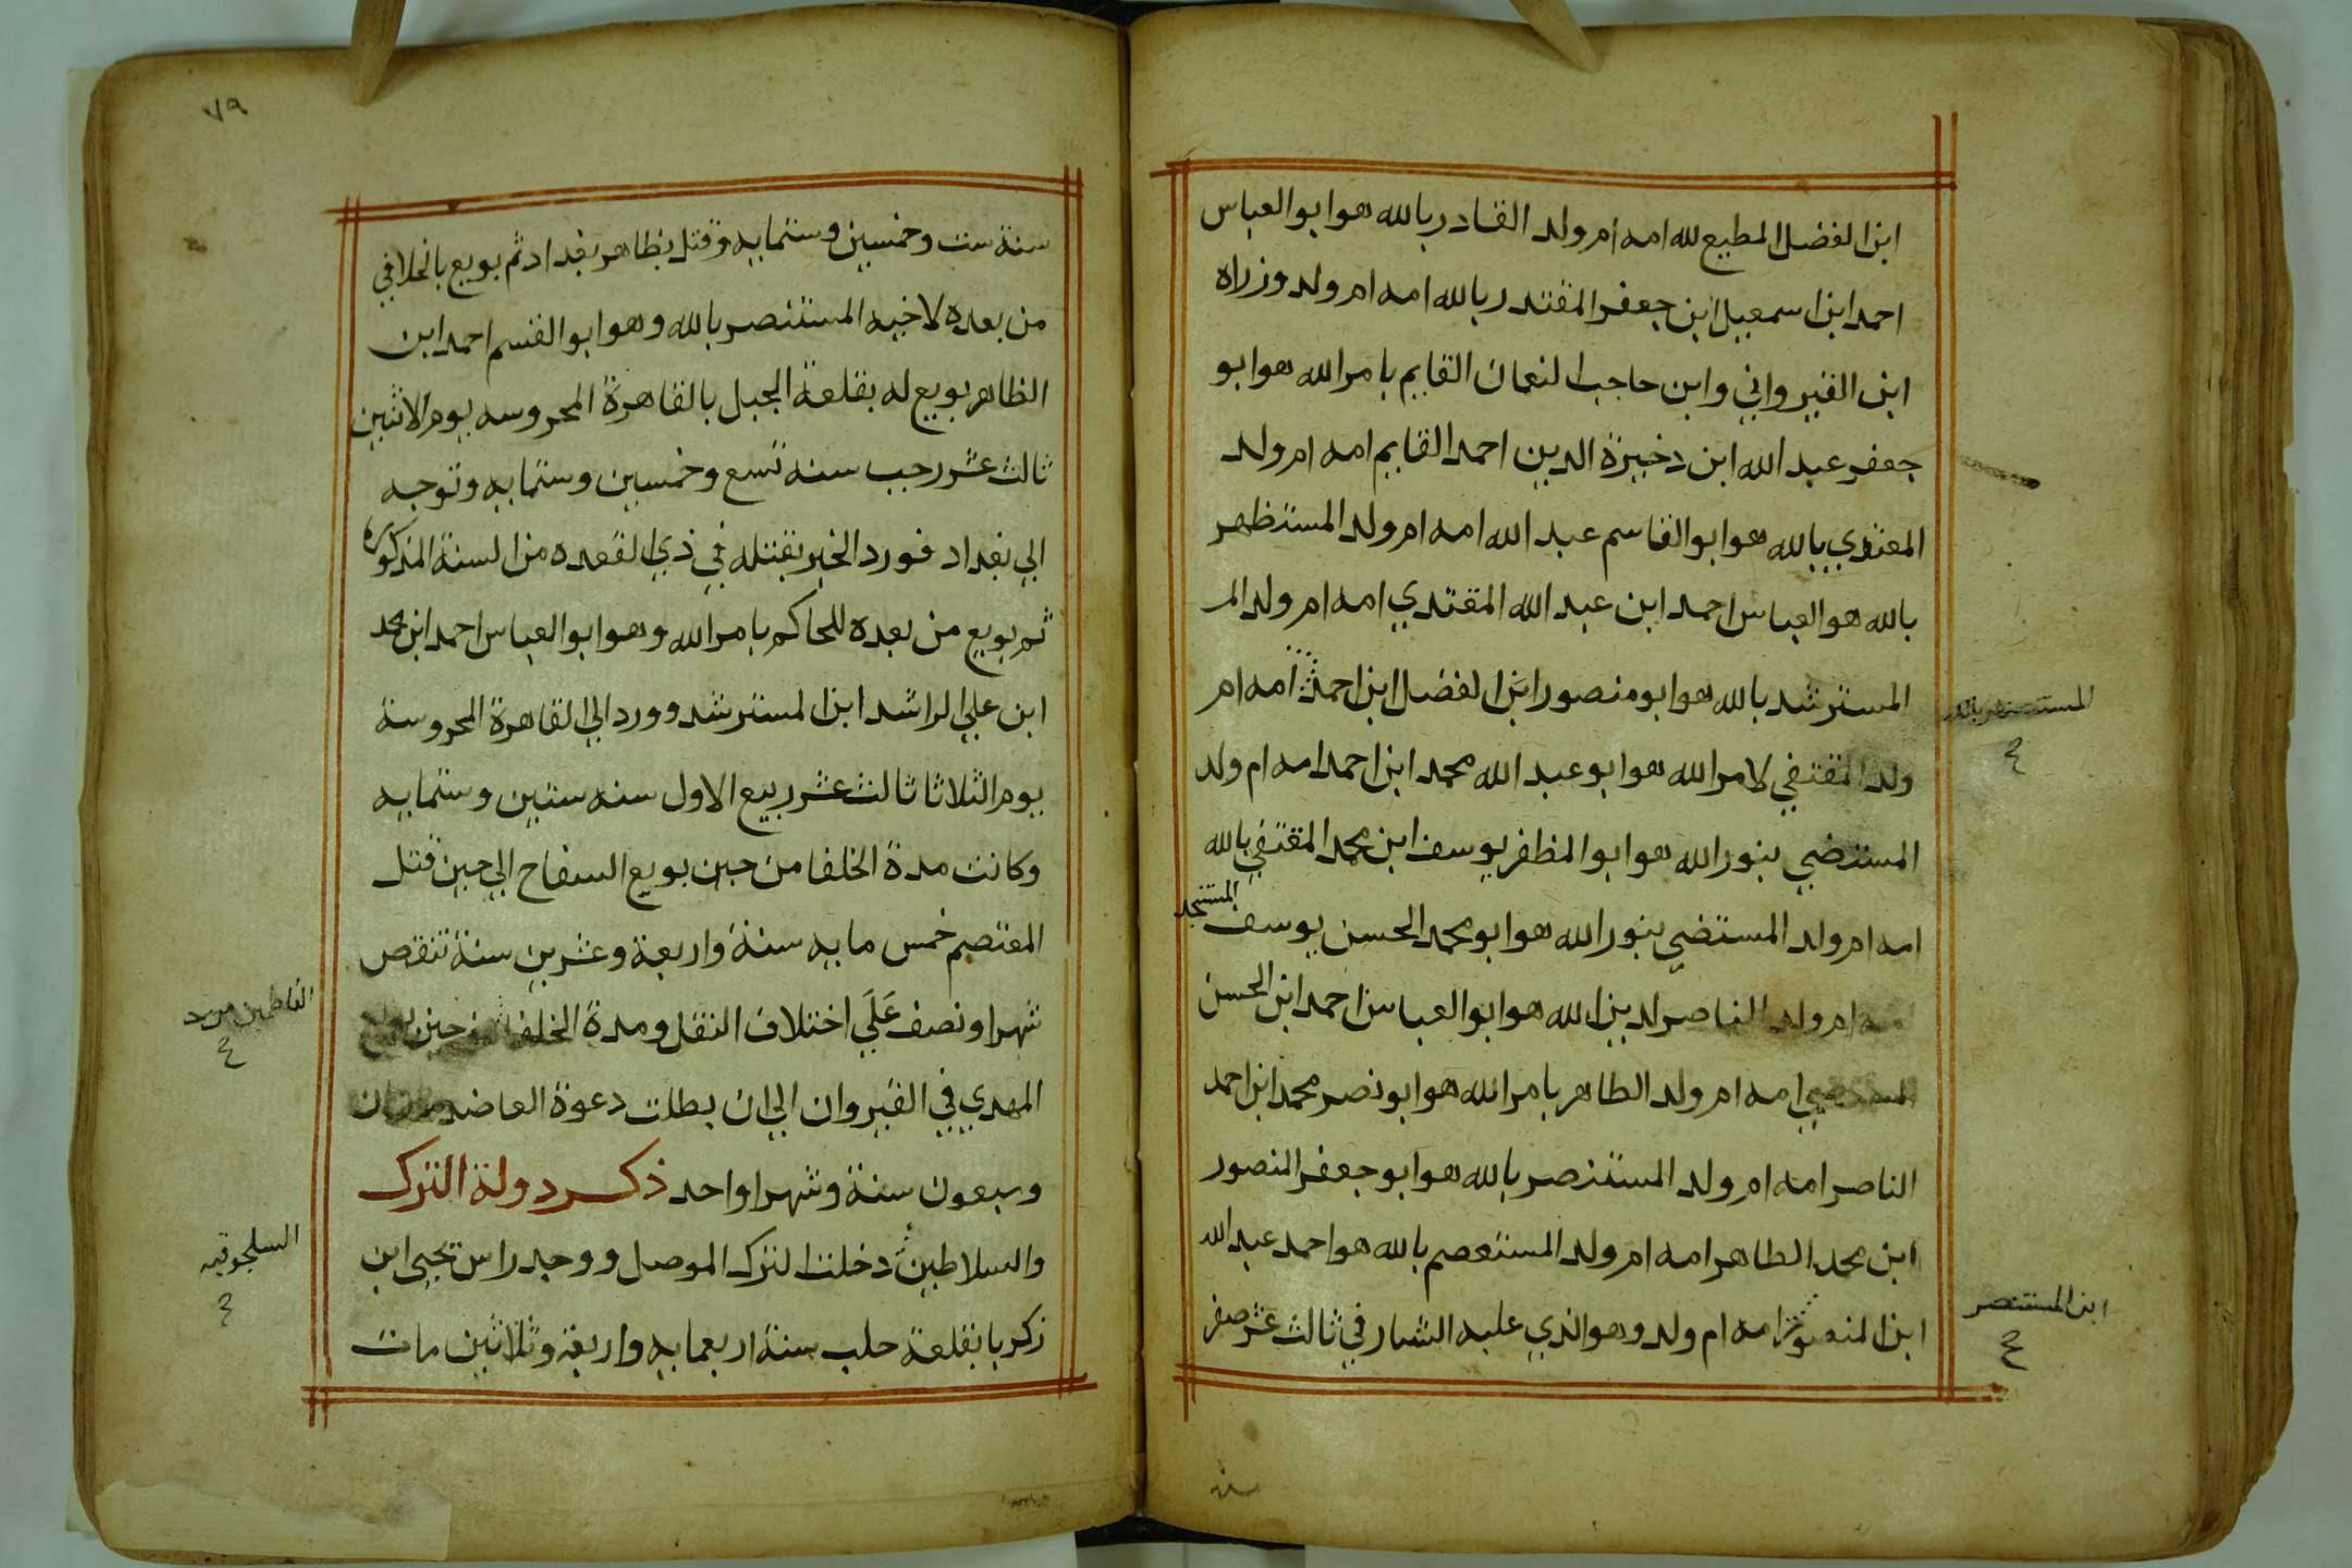 ابن الفضل المطيع لله امه ام ولد القادر بالله هو ابو العباس
احمد ابن اسمعيل ابن جعفر المقتدر بالله امه ام ولد وزراه
ابن القيرواني وابن حاجب النعمان القايم بامر الله هو ابو
جعفر عبد الله ابن دخيرة الدين احمد القايم امه ام ولد
المعتدي بالله هو ابو القاسم عبد الله امه ام ولد المستظهر
بالله هو العباس احمد ابن عبد الله المقتدي امه ام ولد المر
المسترشد بالله هو ابو منصور ابن الفضل ابن احمد امه ام
المستنصر بالله
ولد المقتفي لامر الله هو ابو عبد الله محمد ابن احمد امه ام ولد
المستضي بنور الله هو ابو المظفر يوسف ابن محمد المقتفي بالله
امه ام ولد المستضي بنور الله هو ابو محمد الحسن يوسف المستنجد
امه ام ولد الناصر لدين الله هو ابو العباس احمد ابن الحسن
المستضي امه ام ولد الطاهر بامر الله هو ابو نصر محمد ابن احمد
الناصر امه ام ولد المستنصر بالله هو ابو جعفر المنصور
ابن محمد الطاهر امه ام ولد المستعصم بالله هو احمد عبد الله
ابن المستنصر
ابن المنصور امه ام ولد وهو الذي عليه التتار في ثالث عشر صفر
٧٩
سنة ست وخمسين وستمايه وقتل بظاهر بغداد ثم بويع بالخلافي
من بعده لاخيه المستنصر بالله وهو ابو القسم احمد ابن
الظاهر بويع له بقلعة الجبل بالقاهرة المحروسه يوم الاثنين
ثالث عشر رجب سنه تسع وخمسين وستمايه وتوجه
الي بغداد فورد الخبر بقتله في ذي القعده من السنة المذكوره
ثم بويع من بعده للحاكم بامر الله وهو ابو العباس احمد ابن محمد
ابن علي الراشد ابن المسترشد وورد الي القاهرة المحروسة
يوم الثلاثا ثالث عشر ربيع الاول سنه ستين وستمايه
وكانت مدة الخلفا من حين بويع السفاح الي حين قتل
المعتصم خمس مايه سنة واربعة وعشرين سنة تنقص
شهرا ونصف علي اختلاف النقل ومدة الخلفا من حين بويع
المهدي في القيروان الي ان بطلت دعوة العاضد مايتان
وسبعون سنة وشهرا واحد ذكر دولة الترك
السلجوقيه
والسلاطين دخلت الترك الموصل ووجد راس يحيى ابن
زكريا بقلعة حلب سنة اربعمايه واربعة وثلاثين مات